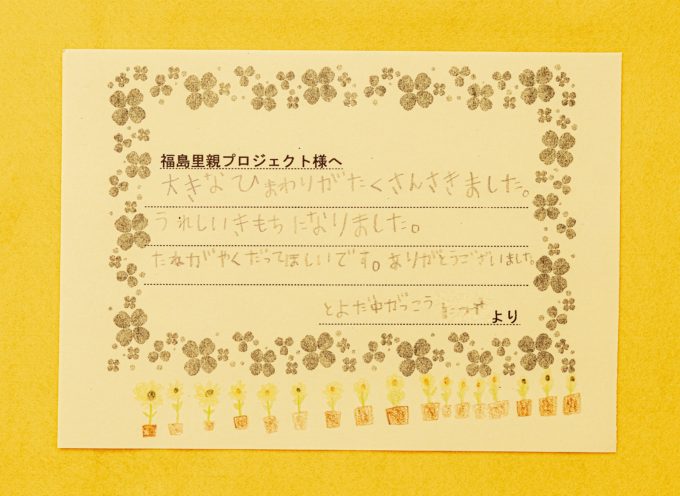 福島里親プロジェクト様へ
大きなひまわりがたくさんさきました。
うれしいきもちになりました。
たねがやくだってほしいです。ありがとうございました。
とよだ中がっこう より